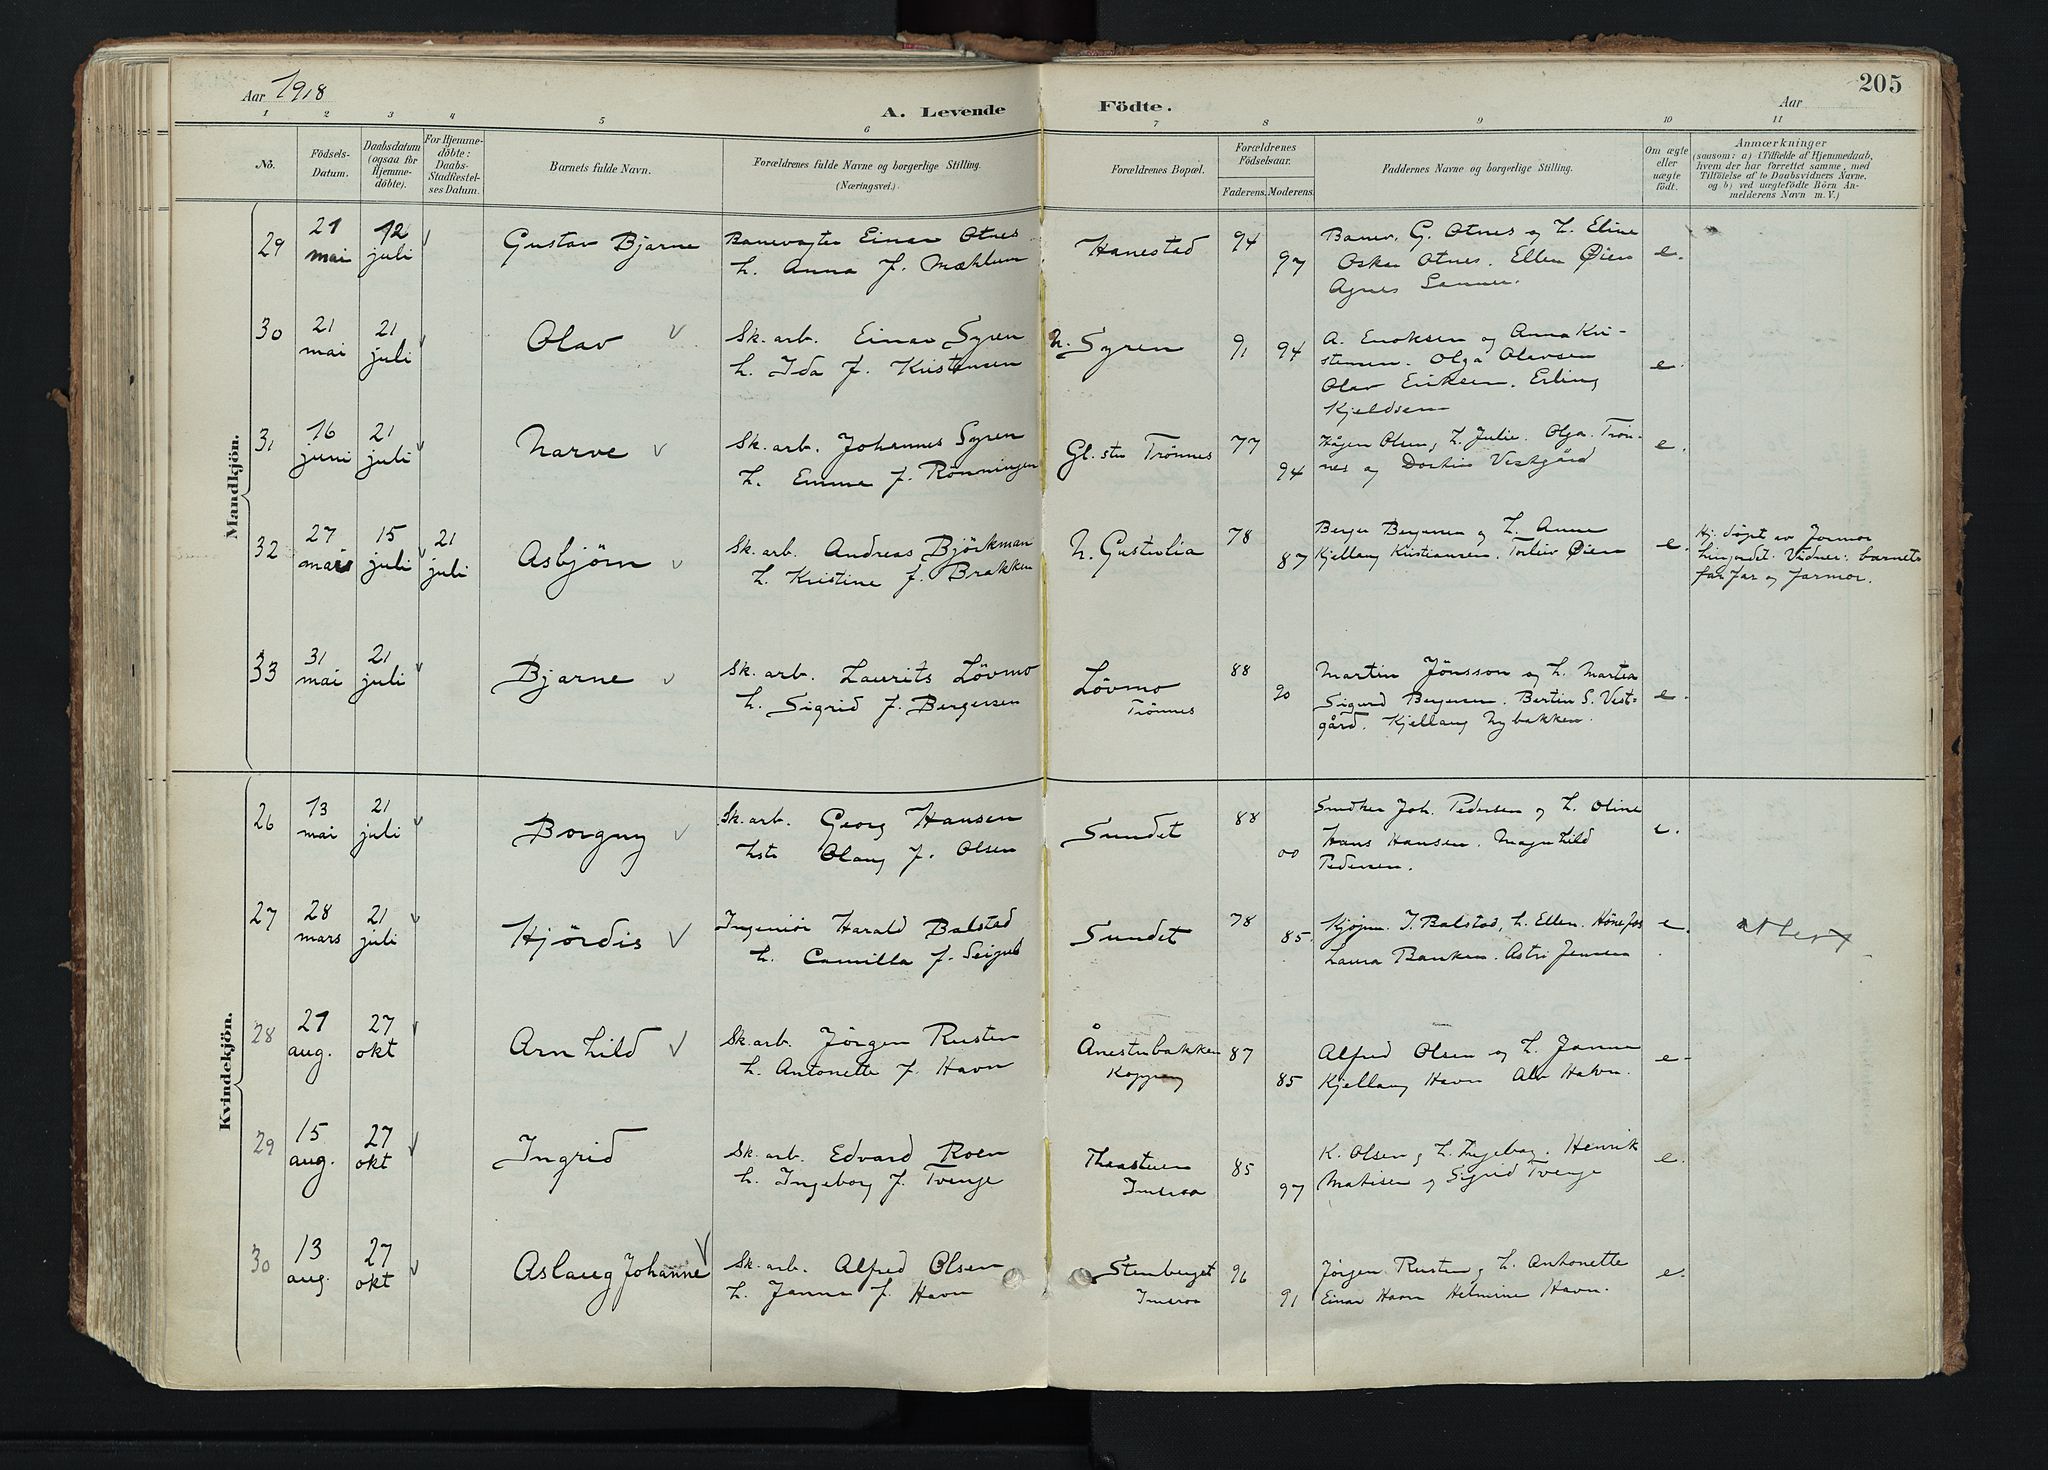 Aar 1918
A. Levende Födte.
Aar
205
1 2 3 4 5 6 7 8 9 10 11
No.
Födsels-Datum.
Daabsdatum (ogsaa for Hjemme-döbte).
For Hjemme-döbte: Daabs-Stadfæstel-ses Datum.
Barnets fulde Navn.
Forældrenes fulde Navne og borgerlige Stilling.
(Næringsvei.)
Forældrenes Bopæl.
Forældrenes Födselsaar.
Faderens. Moderens.
Faddernes Navne og borgerlige Stilling.
Om ægte eller uægte født.
Anmærkninger
(saasom: a) i Tilfælde af Hjemmedaab,
hvem der har forrettet samme, med
Tilföielse af to Daabsvidners Navne,
og b) ved uægtefödte Börn An-
melderens Navn m. V.)
Mandkjön.
29 21 mai 12 juli Gustav Bjarne
Banevogter Einar Otnes
h. Anna f. Mæhlum
Hanestad
94 97
Banev. G. Otnes og h. Eline
Oskar Otnes. Ellen Øien
Agnes
e.
30 21 mai 21 juli Olav
Sk. arb. Einar Syren
h. Ida f. Kristensen
N. Syren
91 94
A. Enoksen og Anna Kri-
stensen. Olga Olavsen
Olav Eriksen. Erling
Kjeldsen
e.
31 16 juni 21 juli Narve
Sk. arb. Johannes Syren
h. Emma f. Rønningen
Gl. stu Trönnes
77 94
Hågen Olsen og h. Julie. Olga Trön-
nes og Dortea Vestgård
e.
32 27 mars 15 juli 21 juli Asbjörn
Sk. arb. Andreas Björkman
h. Kristine f. Brakken
N. Gustulia
78 87
Berger Bergersen og h. Anne
Kjellaug Kristiansen. Torleiv Øien
e.
Hj. døpt av Jormor
Vidner: barnets
farfar og farmor.
33 31 mai 21 juli Bjarne
Sk. arb. Laurits Lövmo
h. Sigrid f. Bergersen
Lövmo
Trönnes
88 90
Martin Jönsson og h. Martea
Sigurd Bergersen. Bertin S. Vest-
gård. Kjellaug Nybakken.
e.
Kvindekjön.
26 13 mai 21 juli Borgny
Sk. arb. Georg Hansen
hstr Olaug f. Olsen
Sundet
88 00
Snedker Joh. Pedersen og h. Oline
Hans Hansen. Magnhild
Pedersen.
e.
27 28 mars 21 juli Hjördis
Ingeniør Harald Balstad
h. Camilla f.
Sundet
78 85.
Kjøpm. J. Balstad, h. Ellen. Hönefos
Laura Banken. Astri Jensen
e.
attest
28 21 aug. 27 okt Arnhild
Sk. arb. Jörgen Rusten
h. Antonette f. Havn
Ånestubakken
Koppang
87 85
Alfred Olsen og h. Janna
Kjellaug Havn Alv Havn.
e
29 15 aug. 27 okt Ingrid
Sk. arb. Edvard Roen
h. Ingeborg f. Tvenge
Thrastuen
Imsroa
85 97
K. Olsen og h. Ingeborg. Henrik
Matisen og Sigrid Tvenge
e.
30 13 aug. 27 okt Aslaug Johanne
Sk. arb. Alfred Olsen
h. Janna f. Havn
Stenberget
Imsroa
96 91
Jørgen Rusten og h. Antonette
Einar Havn Helmine Havn.
e.